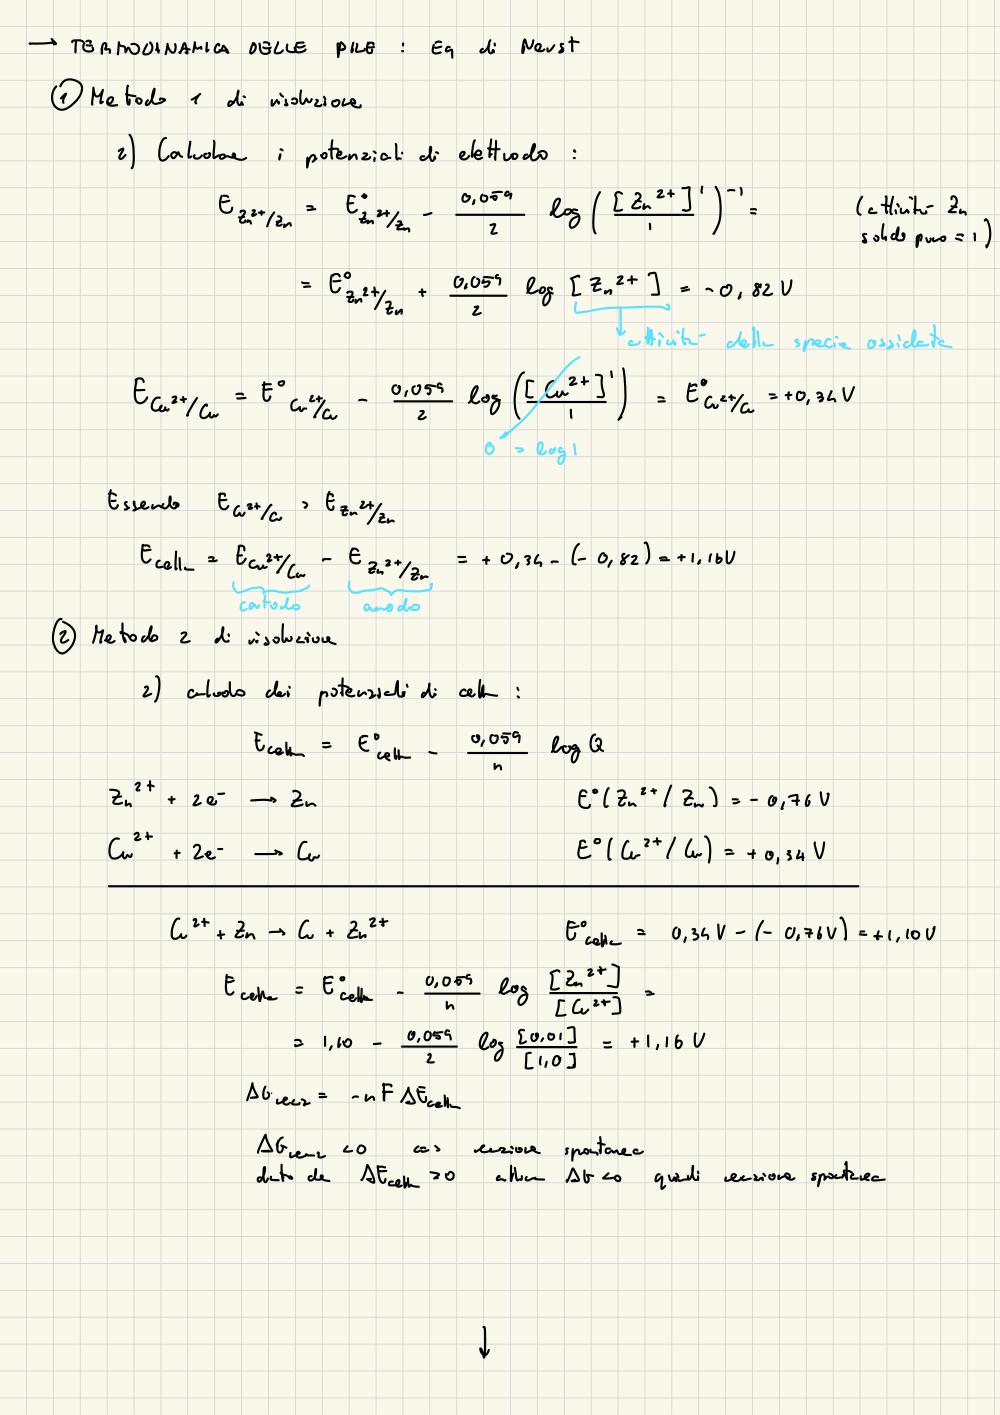 → TERMODINAMICA DELLE PILE : Eq di Nerst
① Metodo 1 di risoluzione
2) Calcolare i potenziali di elettrodo :
E Zn²⁺/Zn = E° Zn²⁺/Zn - 0,059/2 log ( [Zn²⁺]¹ / 1 )⁻¹ = (attività Zn
solido puro = 1)
= E° Zn²⁺/Zn + 0,059/2 log [Zn²⁺] = -0,82 V
attività della specie ossidata
E Cu²⁺/Cu = E° Cu²⁺/Cu - 0,059/2 log ( [Cu²⁺]¹ / 1 ) = E° Cu²⁺/Cu = +0,34 V
0 = log 1
Essendo E Cu²⁺/Cu > E Zn²⁺/Zn
E cella = E Cu²⁺/Cu - E Zn²⁺/Zn = +0,34 - (-0,82) = +1,16 V
catodo anodo
② Metodo 2 di risoluzione
2) calcolo dei potenziali di cella :
E cella = E° cella - 0,059/n log Q
Zn²⁺ + 2e⁻ → Zn E°(Zn²⁺/Zn) = -0,76 V
Cu²⁺ + 2e⁻ → Cu E°(Cu²⁺/Cu) = +0,34 V
Cu²⁺ + Zn → Cu + Zn²⁺ E° cella = 0,34 V - (-0,76 V) = +1,10 V
E cella = E° cella - 0,059/n log [Zn²⁺]/[Cu²⁺] =
= 1,10 - 0,059/2 log [0,01]/[1,0] = +1,16 V
ΔG reaz = -nF ΔE cella
ΔG reaz <0 <=> reazione spontanea
dato che ΔE cella >0 allora ΔG <0 quindi reazione spontanea
↓